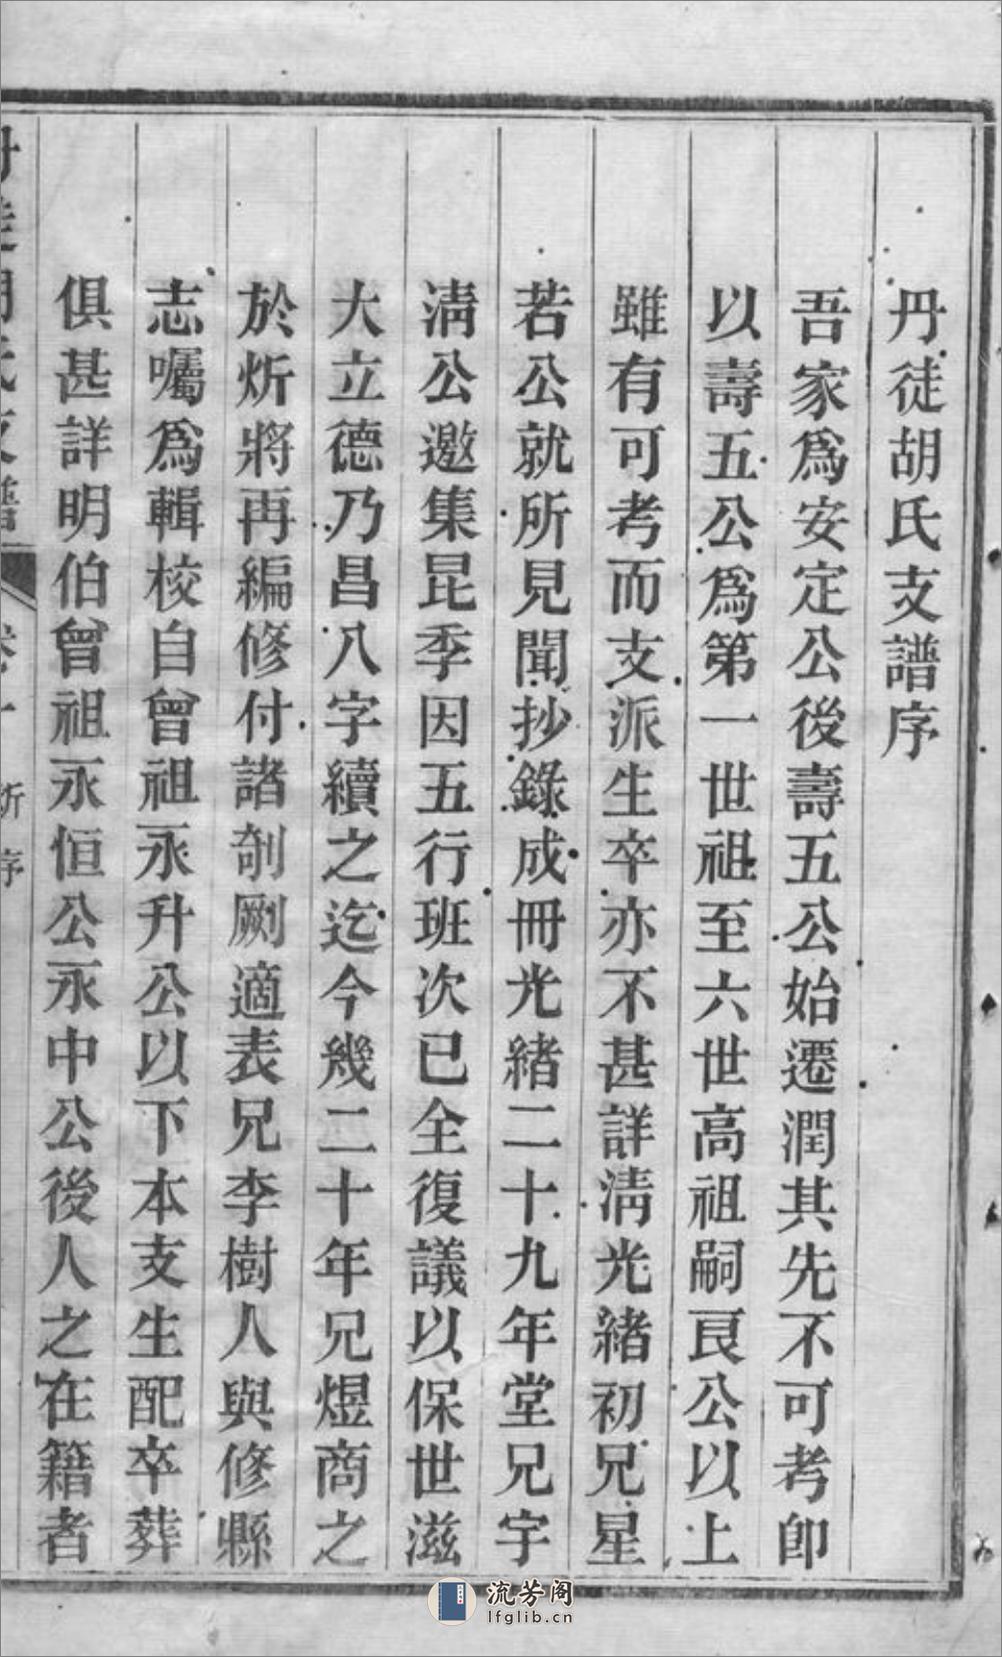 丹徒胡氏支譜序
吾家爲安定公後壽五公始遷潤其先不可考卽
以壽五公爲第一世祖至六世高祖嗣良公以上
雖有可考而支派生卒亦不甚詳淸光緒初兄星
若公就所見聞抄錄成冊光緒二十九年堂兄宇
淸公邀集昆季因五行班次已全復議以保世滋
大立德乃昌八字續之迄今幾二十年兄煜商之
於炘將再編修付諸剞劂適表兄李樹人與修縣
志囑爲輯校自曾祖永升公以下本支生配卒葬
俱甚詳明伯曾祖永恒公永中公後人之在籍者
丹徒胡氏支譜
序
流芳阁
lfglib.cn